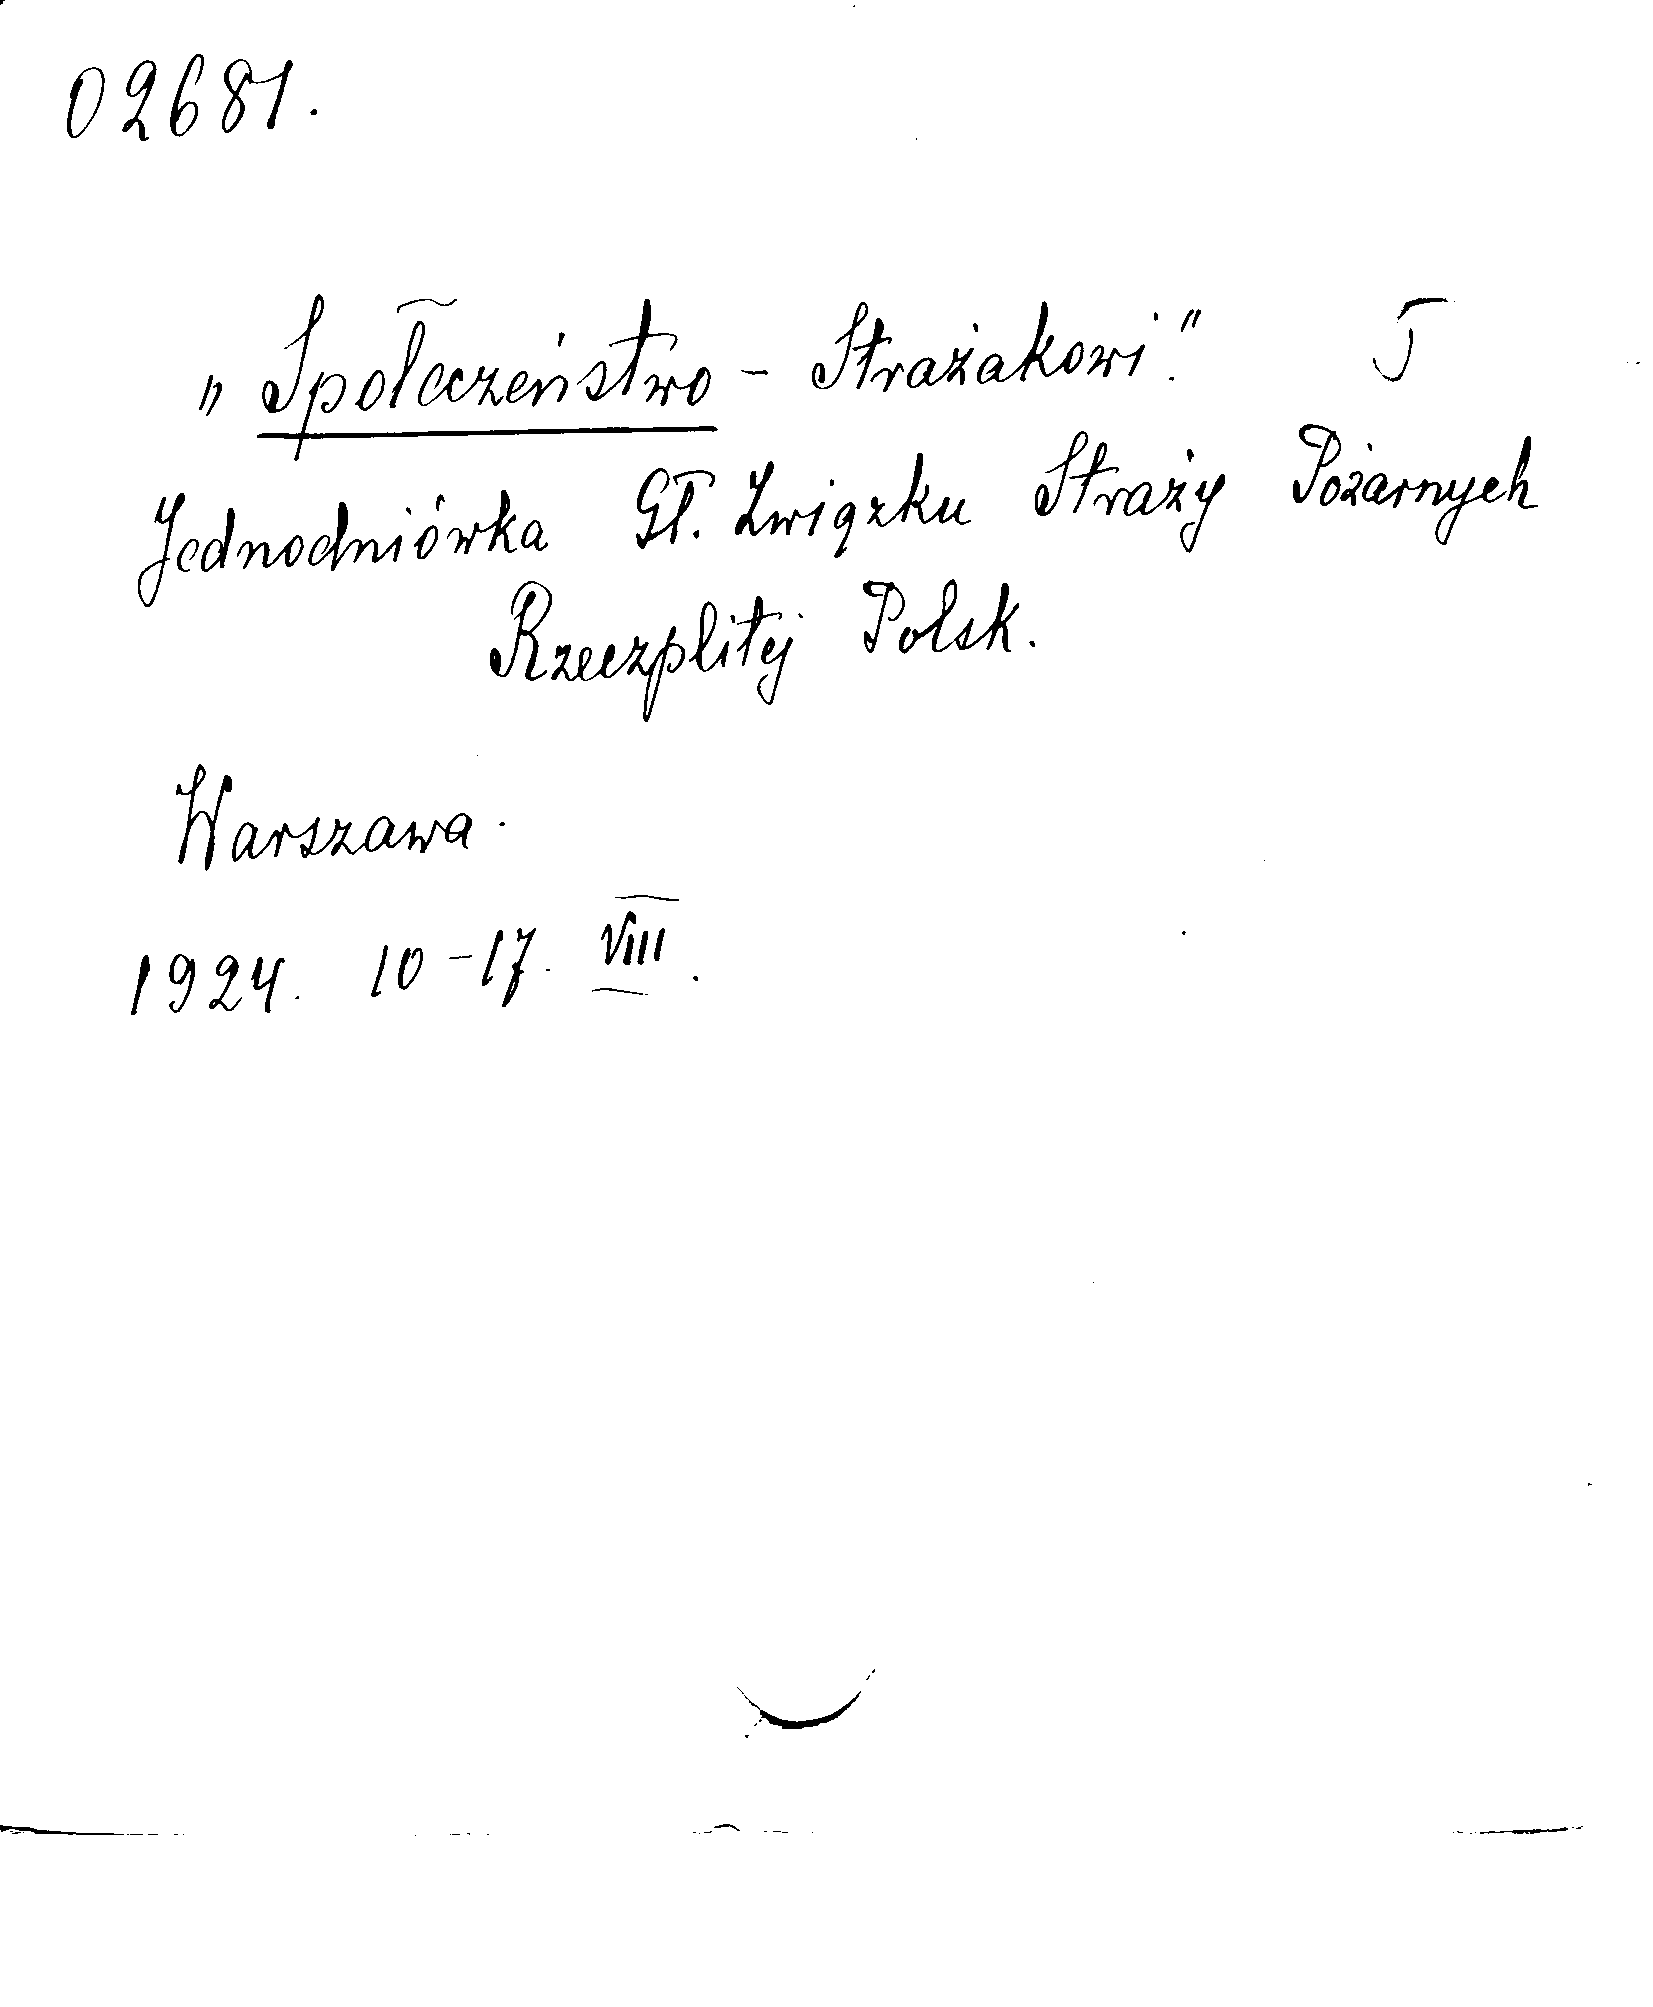 02681.
„Społeczeństwo - Strażakowi." J
Jednodniówka Gł. Związku Straży Pożarnych
Rzeczplitej Polsk.
Warszawa.
1924. 10-17. VIII.